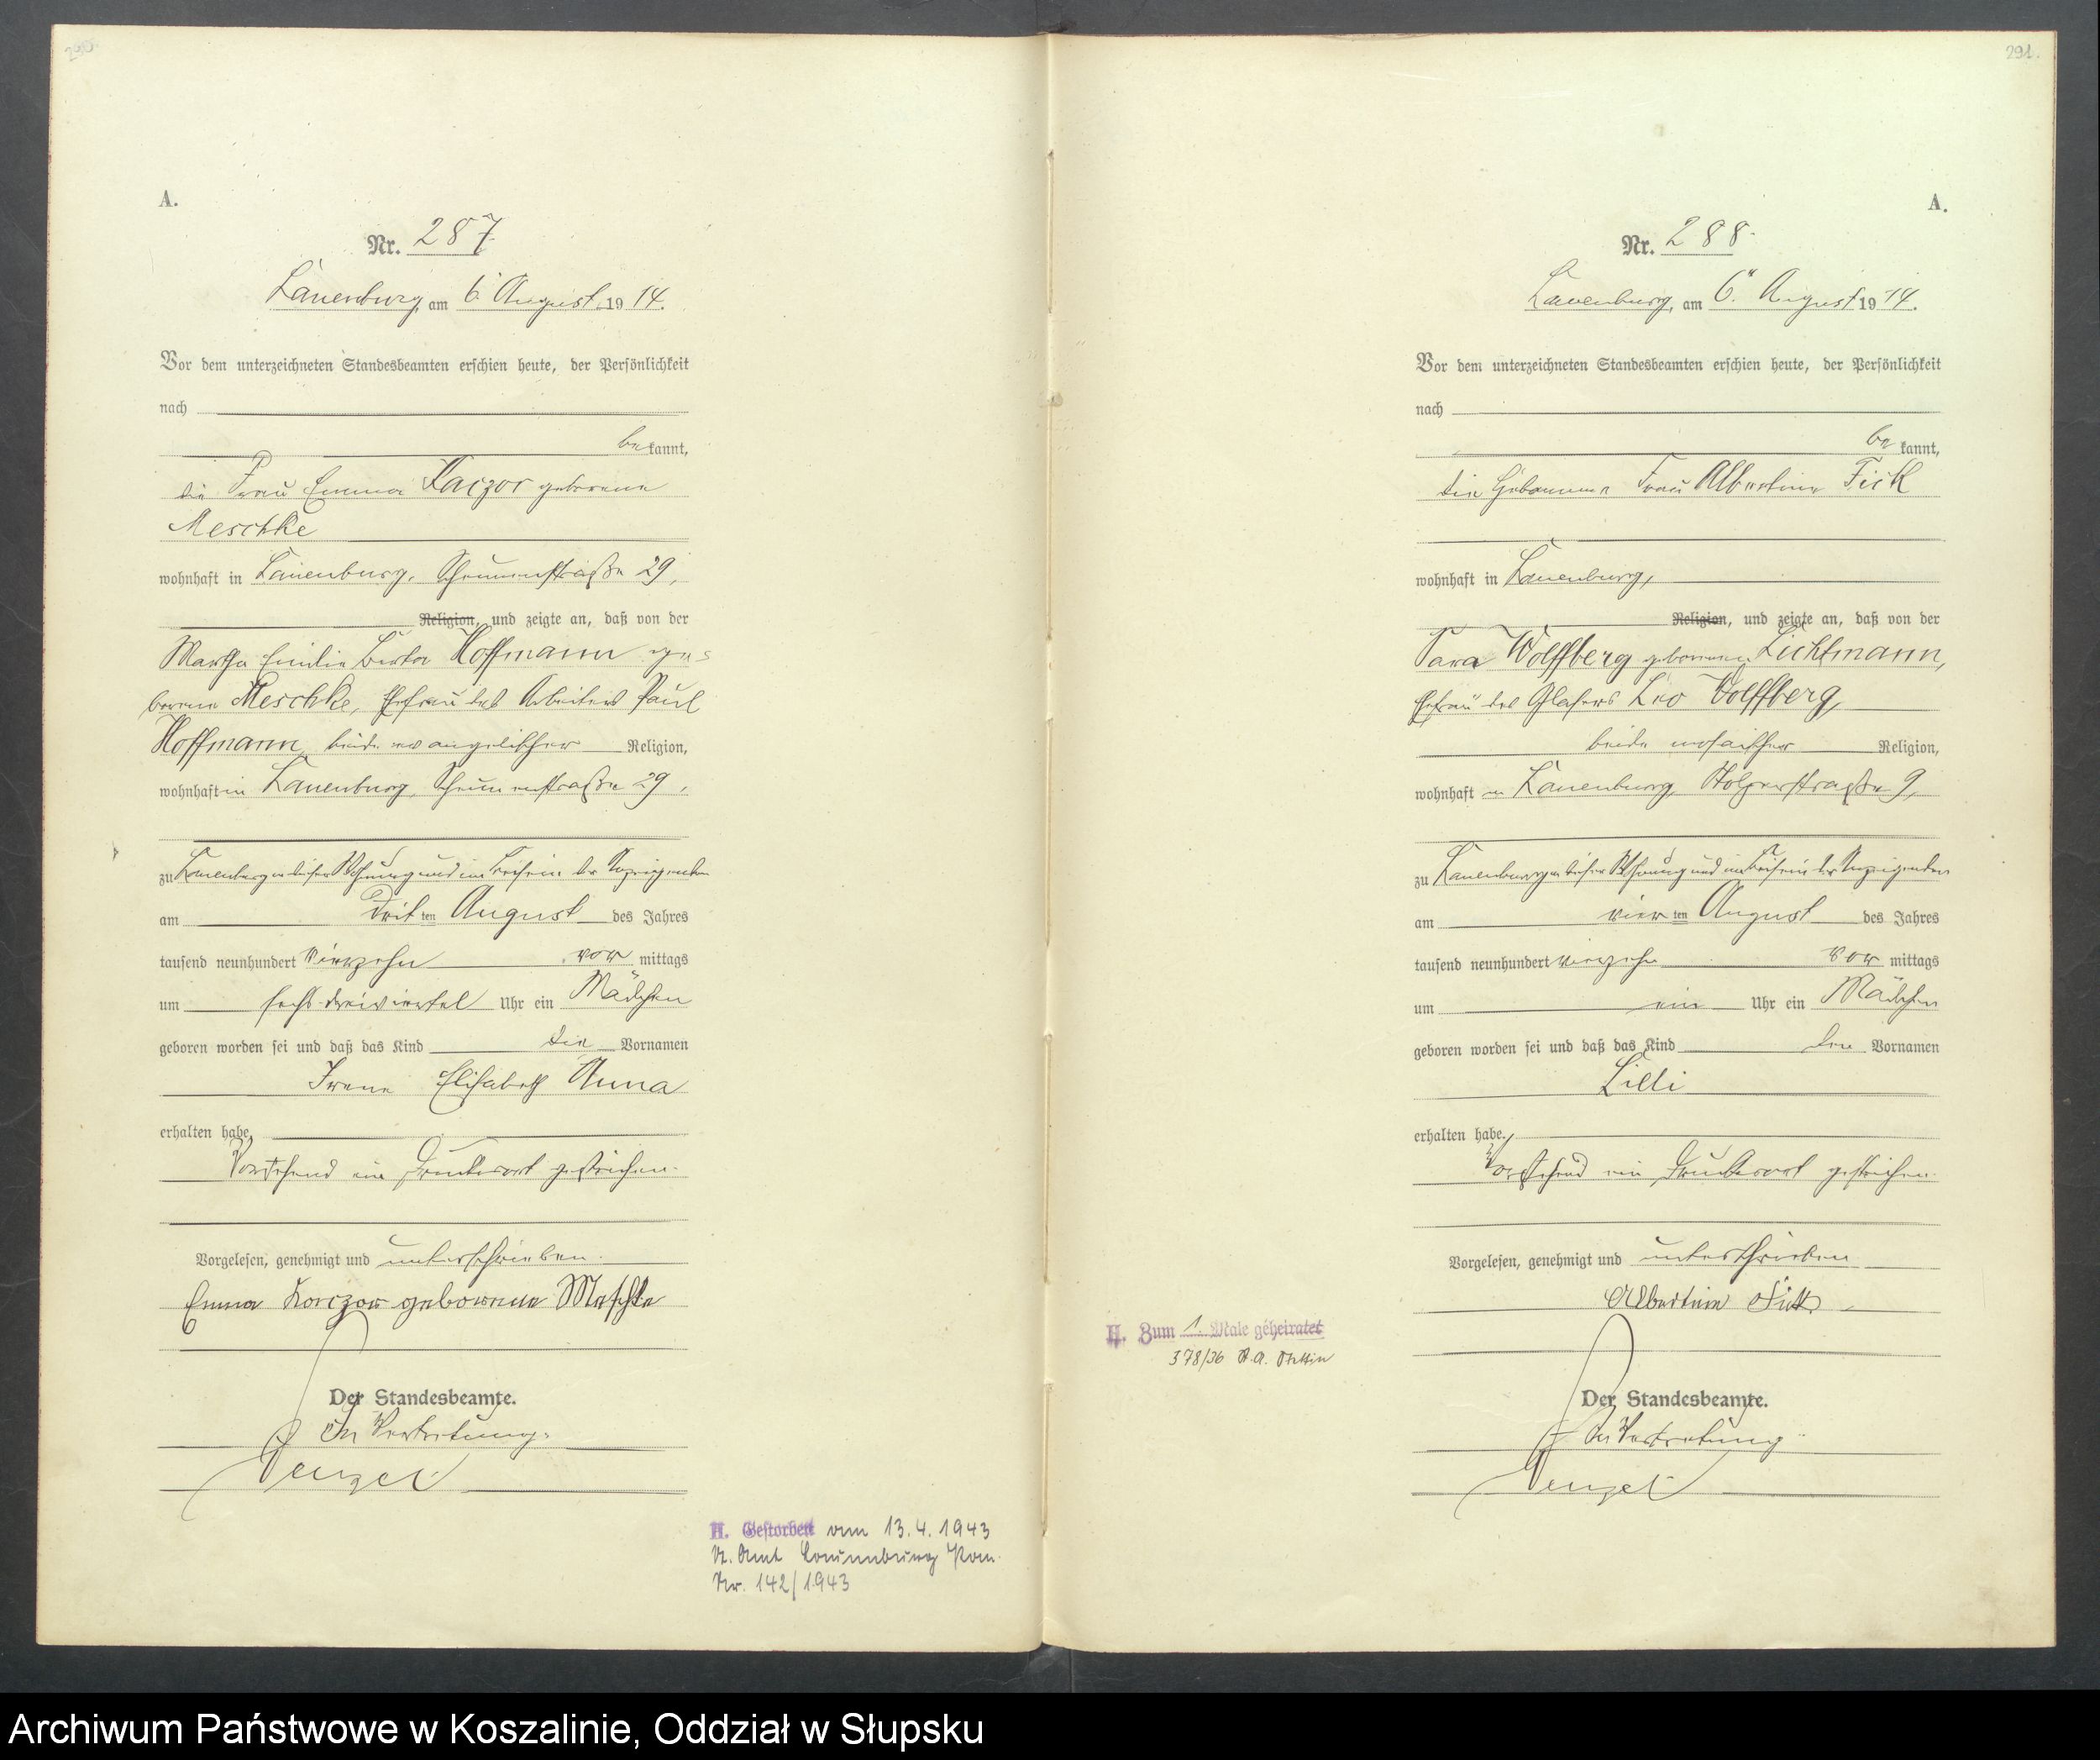 290.
A.
Nr. 287
Lauenburg, am 6. August 1914.
Vor dem unterzeichneten Standesbeamten erschien heute, der Persönlichkeit
nach
bekannt,
die Frau Emma Kaczor geborene
Meschke
wohnhaft in Lauenburg, Scheunenstraße 29,
Religion, und zeigte an, daß von der
Martha Emilie Berta Hoffmann ge-
borene Meschke, Ehefrau des Arbeiters Paul
Hoffmann, beide evangelischer Religion,
wohnhaft in Lauenburg, Scheunenstraße 29,
zu Lauenburg in dieser Wohnung und im Beisein der Anzeigenden
am dritten August des Jahres
tausend neunhundert vierzehn vormittags
um sechs dreiviertel Uhr ein Mädchen
geboren worden sei und daß das Kind die Vornamen
Irene Elisabeth Anna
erhalten habe.
Vorstehend ein Druckwort gestrichen.
Vorgelesen, genehmigt und unterschrieben.
Emma Korczor geborene Meschke
Der Standesbeamte.
In Vertretung.
Wenzel
H. Gestorben am 13.4.1943
St. Amt Lauenburg Pom.
Nr. 142/1943
291.
A.
Nr. 288.
Lauenburg, am 6. August 1914.
Vor dem unterzeichneten Standesbeamten erschien heute, der Persönlichkeit
nach
bekannt,
die Hebamme Frau Albertine Fick
wohnhaft in Lauenburg,
Religion, und zeigte an, daß von der
Sara Wolffberg geborenen Lichtmann,
Ehefrau des Glasers Leo Wolffberg,
beide mosaischer Religion,
wohnhaft in Lauenburg, Stolperstraße 9,
zu Lauenburg in dieser Wohnung und im Beisein der Anzeigenden
am vierten August des Jahres
tausend neunhundert vierzehn vormittags
um ein Uhr ein Mädchen
geboren worden sei und daß das Kind den Vornamen
Lilli
erhalten habe.
Vorstehend ein Druckwort gestrichen.
Vorgelesen, genehmigt und unterschrieben
Albertine Fick
H. Zum 1. Male geheiratet
378/36 St.A. Stettin
Der Standesbeamte.
In Vertretung.
Wenzel
Archiwum Państwowe w Koszalinie, Oddział w Słupsku